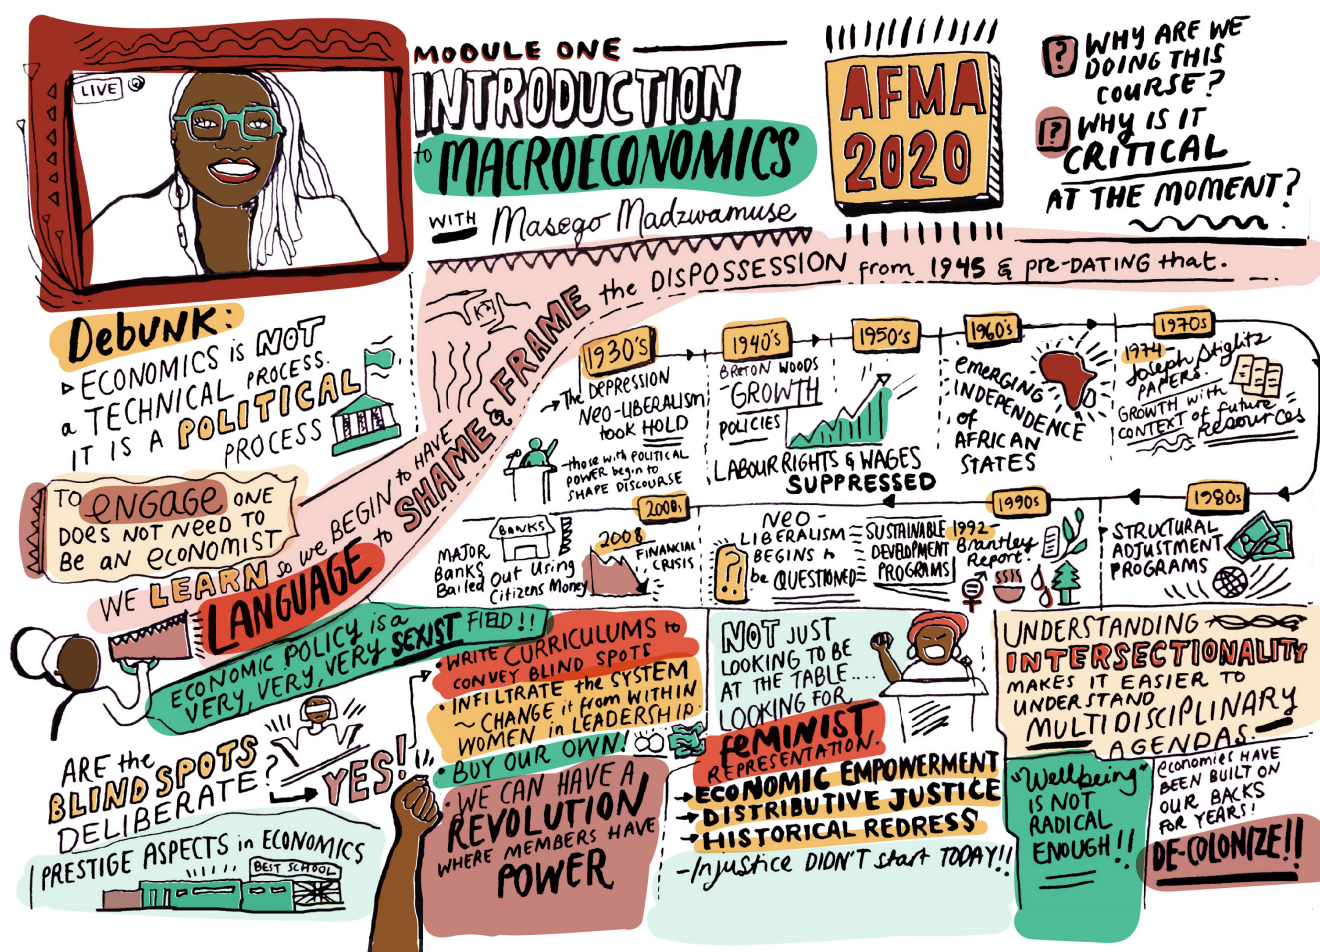 LIVE
MODULE ONE
INTRODUCTION
to MACROECONOMICS
WITH Masego Madzwamuse
AFMA
2020
? WHY ARE WE
DOING THIS
COURSE?
? WHY IS IT
CRITICAL
AT THE MOMENT?
DEBUNK:
ECONOMICS is NOT
a TECHNICAL PROCESS.
IT IS A POLITICAL
PROCESS
TO ENGAGE ONE
DOES NOT NEED TO
BE AN ECONOMIST
WE LEARN
LANGUAGE
so we BEGIN to HAVE
to SHAME & FRAME
the DISPOSSESSION from 1945 & PRE-DATING that.
1930's
The DEPRESSION
NEO-LIBERALISM
took HOLD
-those with POLITICAL
POWER begin to
SHAPE DISCOURSE
1940's
BRETON WOODS
-GROWTH
POLICIES
1950's
LABOUR RIGHTS & WAGES
SUPPRESSED
1960's
EMERGING
INDEPENDENCE
of
AFRICAN
STATES
1970s
1974
Joseph Stiglitz
PAPERS.
GROWTH with
CONTEXT of future
Resources
1980s
STRUCTURAL
ADJUSTMENT
PROGRAMS
1990s
1992-
Brantley
Report.
SUSTAINABLE
DEVELOPMENT
PROGRAMS
NEO-
LIBERALISM
BEGINS to
be QUESTIONED
?
2000s
2008
FINANCIAL
CRISIS
BANKS
MAJOR
BANKS
Bailed Out Using
Citizens Money
ECONOMIC POLICY is a
VERY, VERY, VERY SEXIST FIELD!!
ARE the
BLIND SPOTS
DELIBERATE?
YES!
PRESTIGE ASPECTS in ECONOMICS
BEST SCHOOL
• WRITE CURRICULUMS to
CONVEY BLIND SPOTS
• INFILTRATE the SYSTEM
~ CHANGE it from WITHIN
WOMEN in LEADERSHIP
• BUY OUR OWN!
• WE CAN HAVE A
REVOLUTION
WHERE MEMBERS HAVE
POWER
NOT JUST
LOOKING TO BE
AT THE TABLE....
LOOKING FOR
FEMINIST
REPRESENTATION.
ECONOMIC EMPOWERMENT
DISTRIBUTIVE JUSTICE
HISTORICAL REDRESS
-Injustice DIDN'T start TODAY!!
UNDERSTANDING
INTERSECTIONALITY
MAKES IT EASIER TO
UNDERSTAND
MULTIDISCIPLINARY
AGENDAS.
"Wellbeing"
IS NOT
RADICAL
ENOUGH!!
economies HAVE
BEEN BUILT ON
OUR BACKS
FOR YEARS!
DE-COLONIZE!!